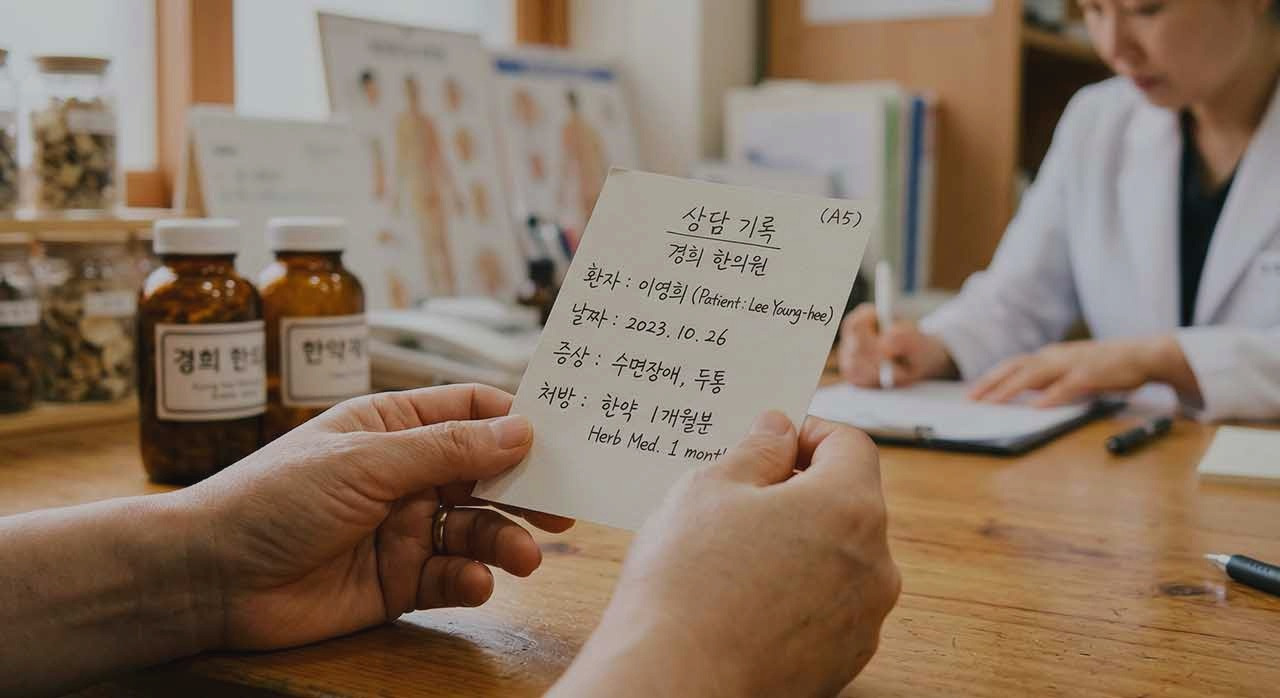 상담 기록
(A5)
경희 한의원
환자 : 이영희 (Patient: Lee Young-hee)
날짜 : 2023. 10. 26
증상 : 수면장애, 두통
처방 : 한약 1개월분
Herb Med. 1 mont
경희 한
한약